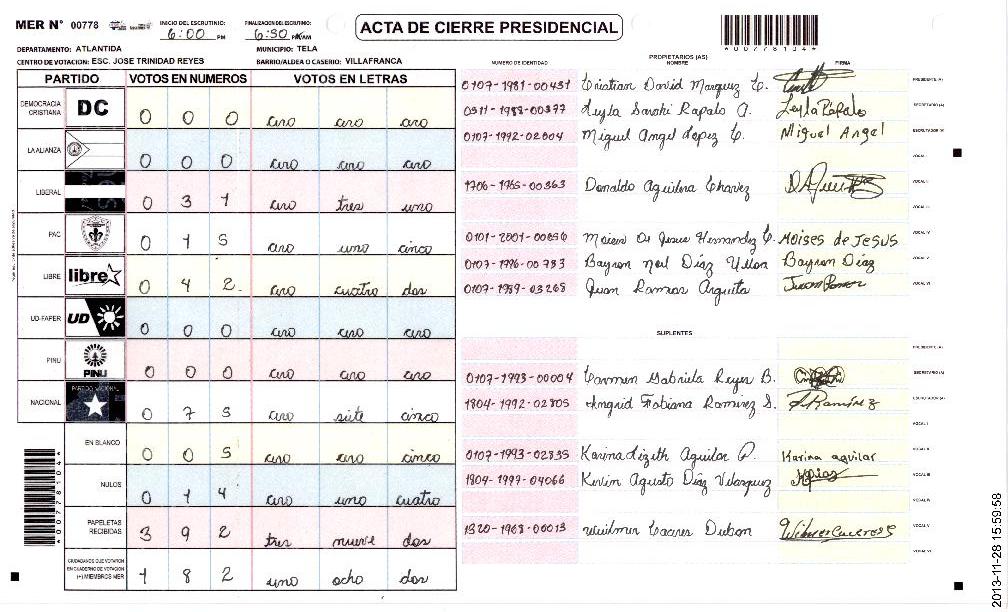 MER N° 00778
INICIO DEL ESCRUTINIO: 6:00 PM
FINALIZACION DEL ESCRUTINIO: 6:30 PM/AM
ACTA DE CIERRE PRESIDENCIAL
*00778104*
DEPARTAMENTO: ATLANTIDA MUNICIPIO: TELA
CENTRO DE VOTACION: ESC. JOSE TRINIDAD REYES BARRIO/ALDEA O CASERIO: VILLAFRANCA
PARTIDO VOTOS EN NUMEROS VOTOS EN LETRAS
DEMOCRACIA CRISTIANA DC 0 0 0 cero cero cero
LA ALIANZA 0 0 0 cero cero cero
LIBERAL 0 3 1 cero tres uno
PAC 0 1 5 cero uno cinco
LIBRE libre 0 4 2 cero cuatro dos
UD-FAPER UD 0 0 0 cero cero cero
PINU PINU 0 0 0 cero cero cero
NACIONAL PARTIDO NACIONAL 0 7 5 cero siete cinco
EN BLANCO 0 0 5 cero cero cinco
NULOS 0 1 4 cero uno cuatro
PAPELETAS RECIBIDAS 3 9 2 tres nueve dos
CIUDADANOS QUE VOTARON EN CUADERNO DE VOTACION (+) MIEMBROS MER 1 8 2 uno ocho dos
*00778104*
PROPIETARIOS (AS)
NUMERO DE IDENTIDAD NOMBRE FIRMA
0107-1981-00451 Cristian David Marquez C. PRESIDENTE (A)
0511-1988-00377 Leyla Sarahi Rapalo A. Leyla Rápalo SECRETARIO (A)
0107-1992-02004 Miguel Angel Lopez C. Miguel Angel ESCRUTADOR (A)
VOCAL I
1706-1965-00363 Donaldo Aguilera Chavez VOCAL II
VOCAL III
0101-2001-00856 Moises De Jesus Hernandez C. MOISES de JESUS VOCAL IV
0107-1996-00733 Bayron Diaz VOCAL V
0107-1989-03268 Juan Ramos VOCAL VI
SUPLENTES
PRESIDENTE (A)
0107-1993-00004 Carmen Gabriela Reyes B. SECRETARIO (A)
1804-1992-02805 Ingrid Fabiana Ramirez S. ESCRUTADOR (A)
VOCAL I
0107-1993-02835 Karina Lizeth Aguilar P. Karina aguilar VOCAL II
1804-1997-04066 Kevin Agusto Diaz Velasquez VOCAL III
VOCAL IV
1320-1968-00013 Wuilmer Caceres Dubon VOCAL V
VOCAL VI
2013-11-28 15:59:58